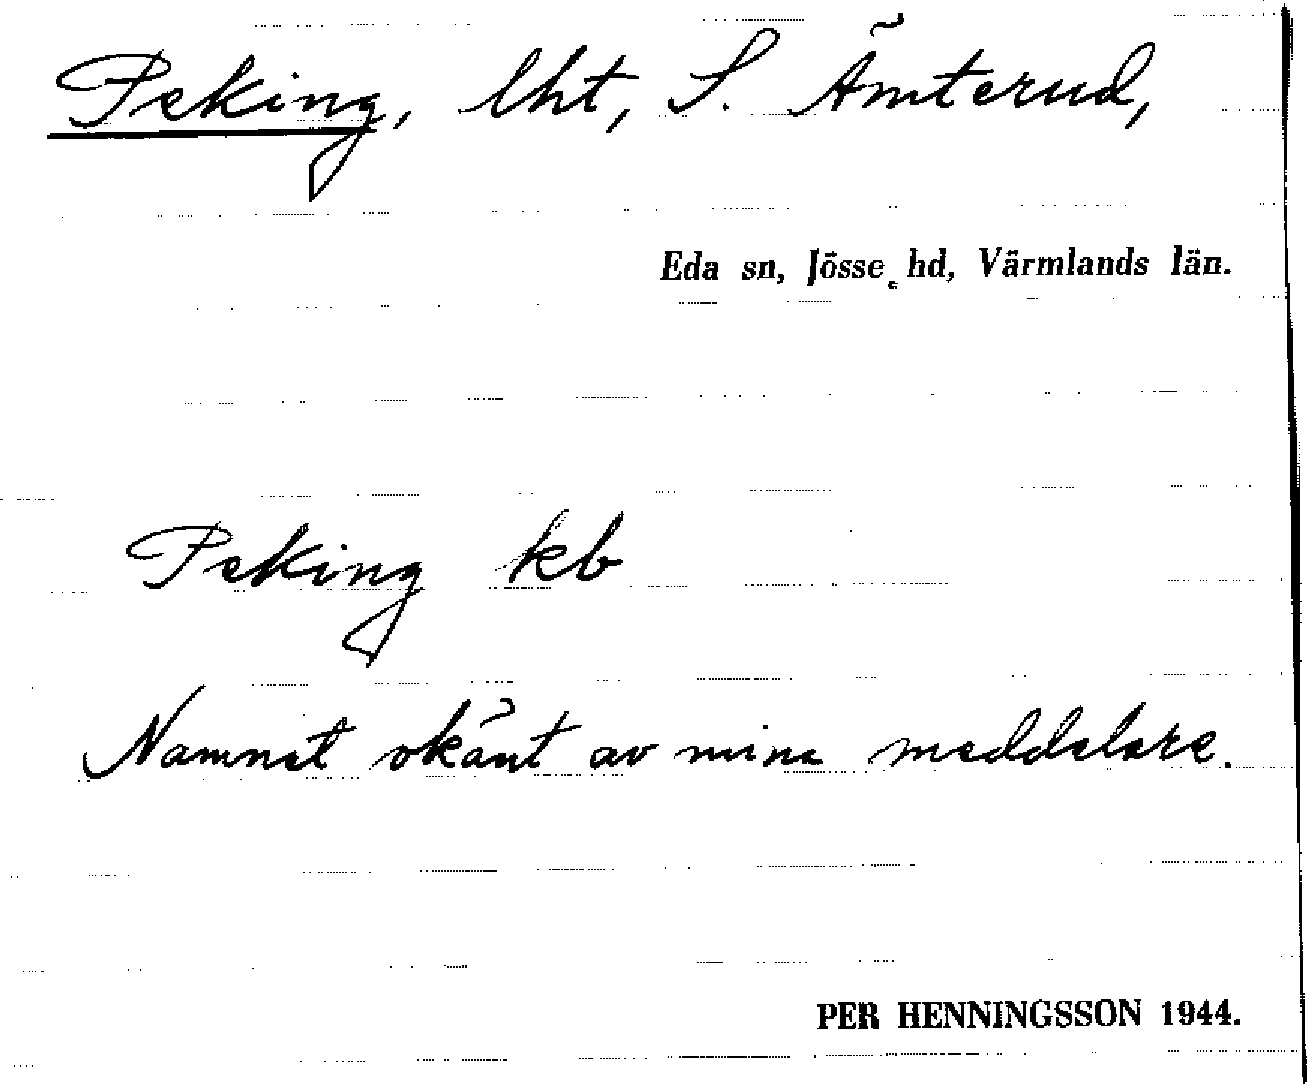 Peking, lht, S. Ämterud,
Eda sn, Jösse hd, Värmlands län.
Peking kb
Namnet okänt av mina meddelare.
PER HENNINGSSON 1944.